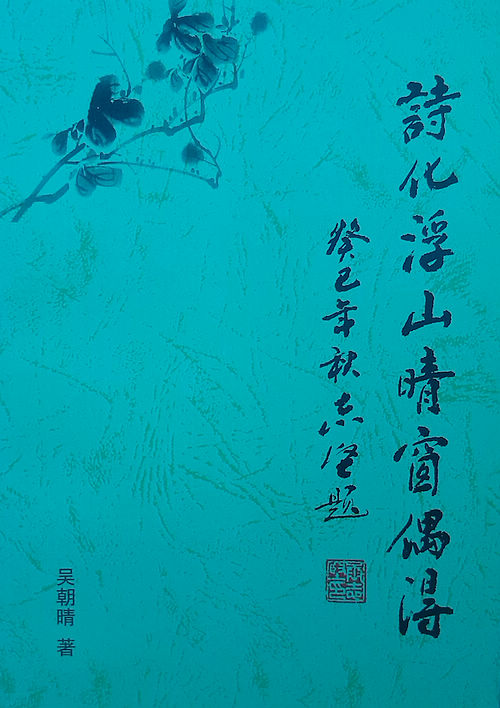 詩化浮山晴窗偶得
癸巳年秋志坚題
吴朝晴 著